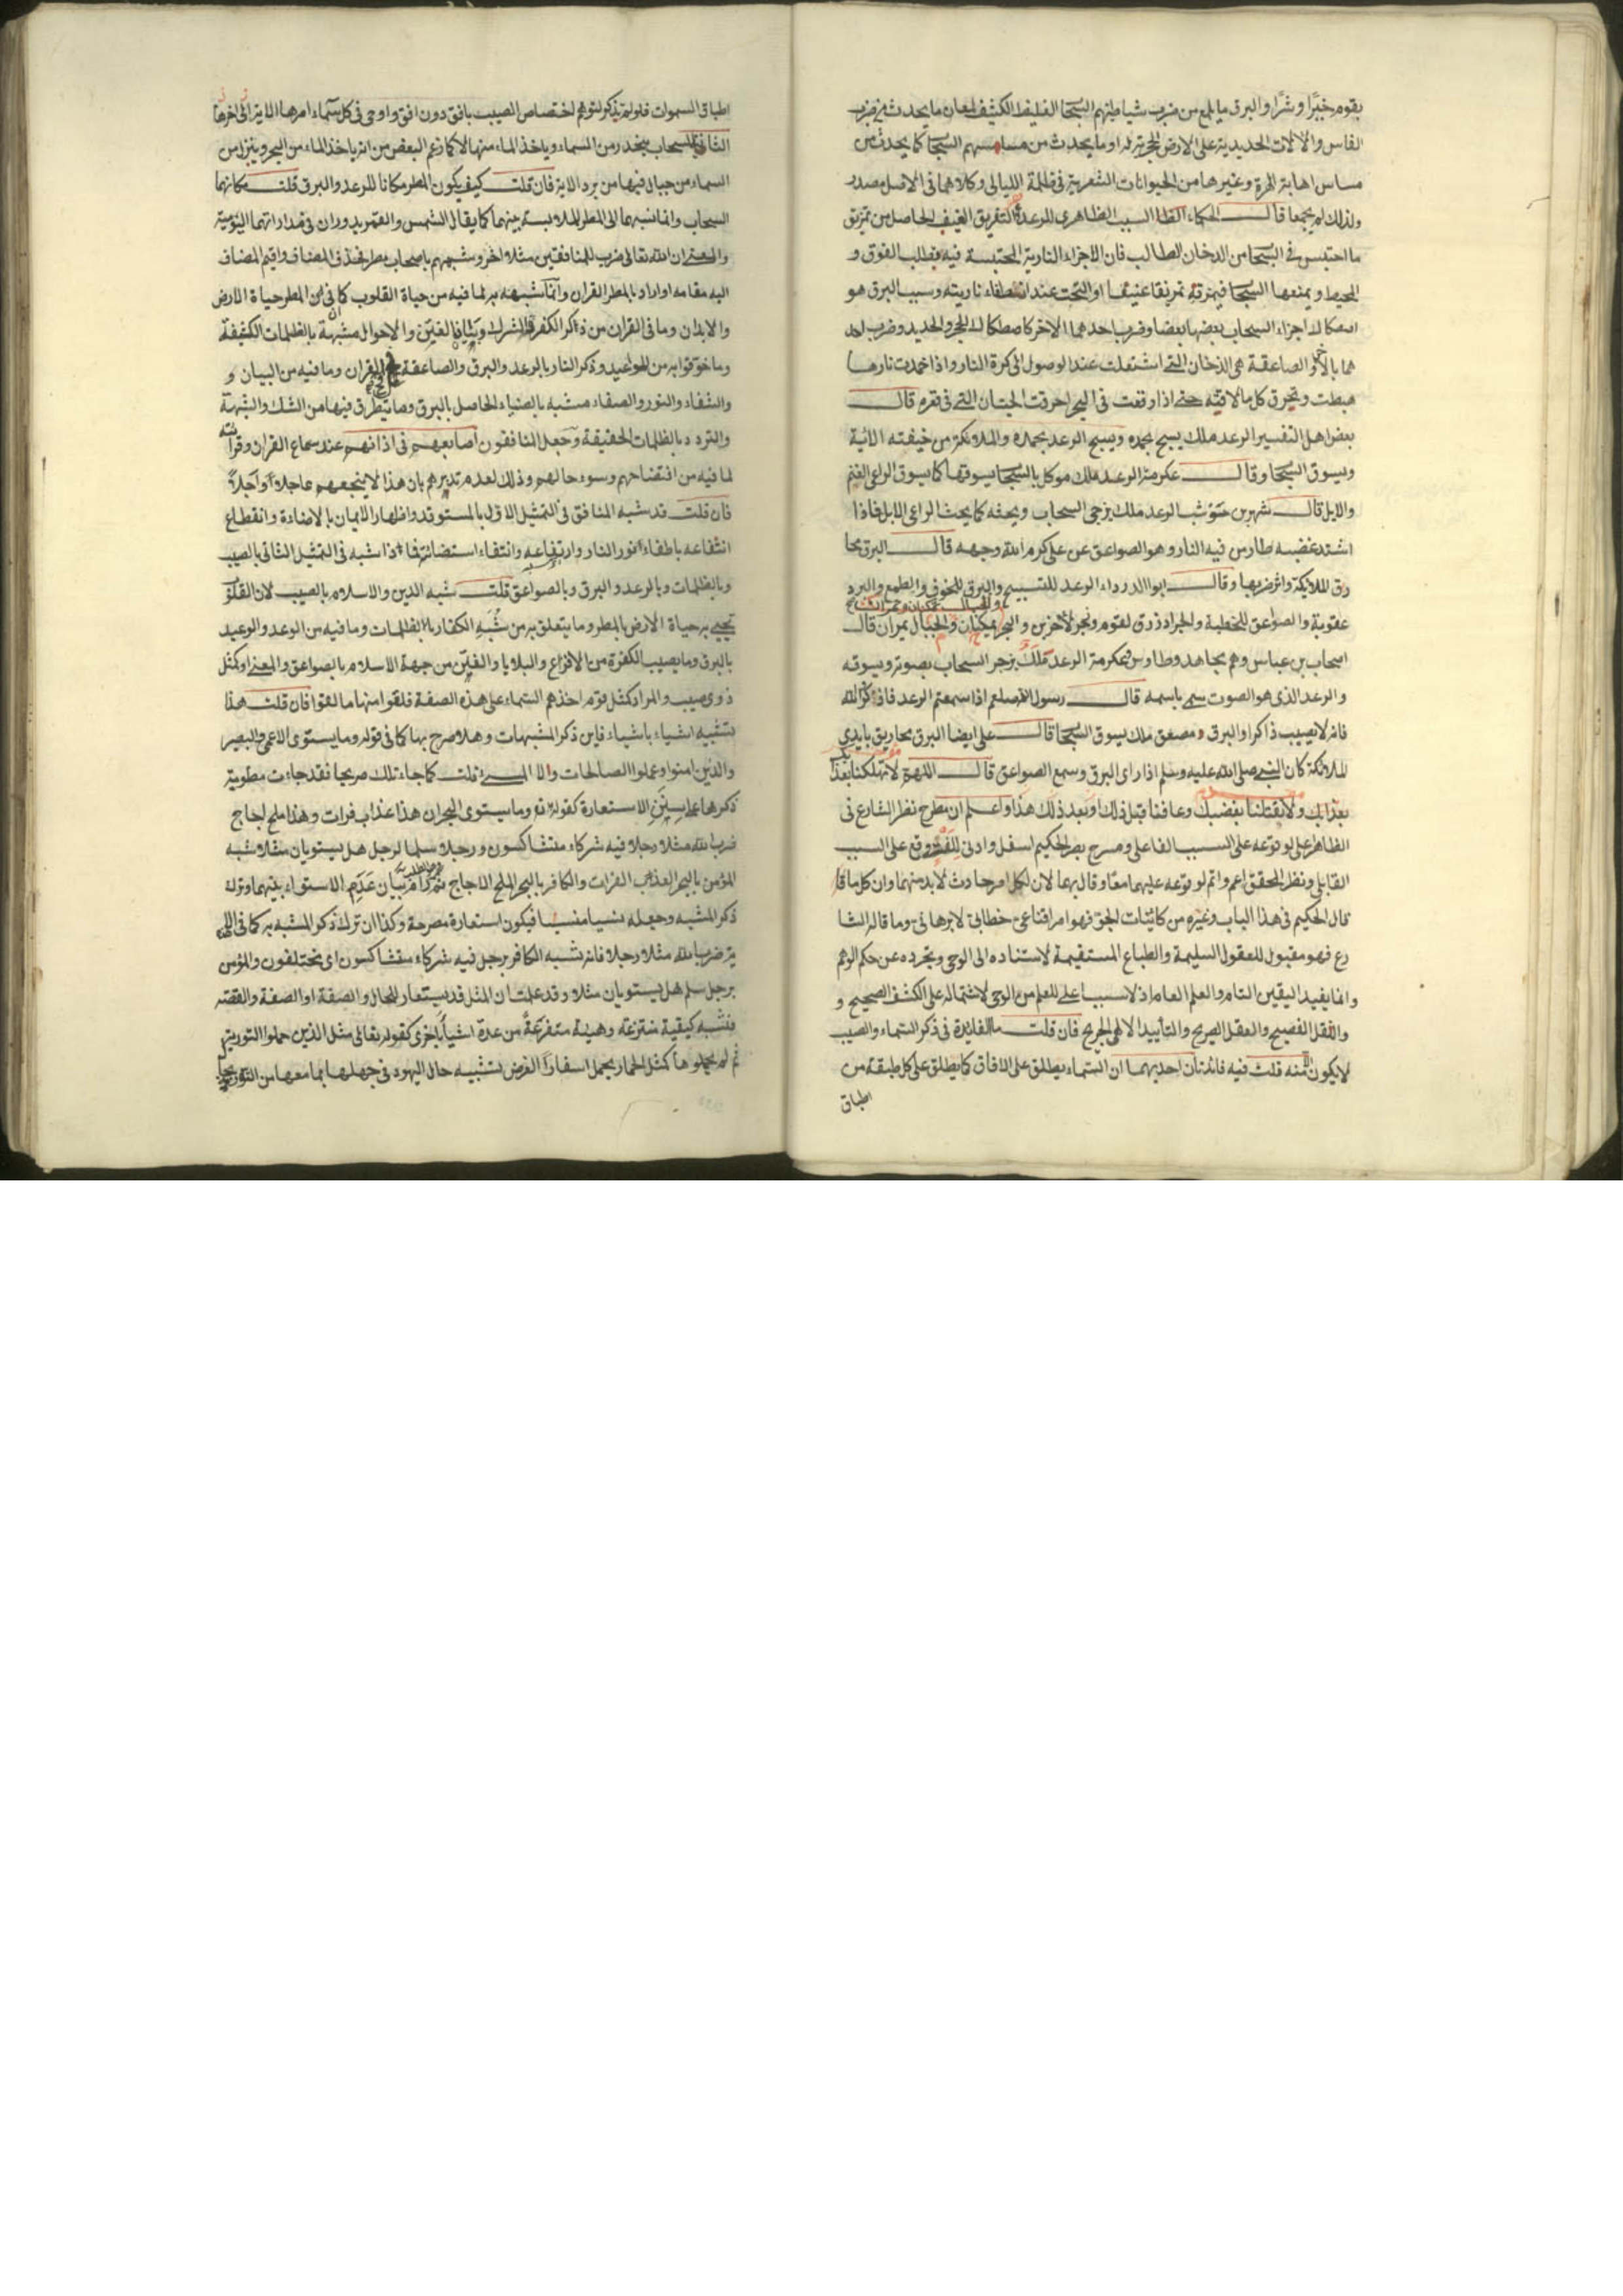 بقوم خيرًا وشرًا والبرق ما يلمع من ضرب شياطينهم السحاب الغليظ الكثيف لمعان ما يحدث من ضرب
الفاس والالات الحديدية على الارض الحجرية او ما يحدث من السحاب كما يحدث من
مساس اهابة الهرة وغيرها من الحيوانات الشعرية في ظلمة الليالي وكلاهما في الاصل مصدر
ولذلك لم يجمعا قال الحكماء السبب الظاهرى للرعد التفريق العنيف الحاصل من تمزيق
ما احتبس في السحاب من الدخان الطالب فان الاجزاء النارية المحتبسة فيه يطلب الفوق و
المحيط ويمنعها السحاب فيمزقه تمزيقا عنيفا او التحت عند انطفاء ناريته وسبب البرق هو
اصكاك اجزاء السحاب بعضها بعضا وضرب احدهما الاخر كاصطكاك الحجر والحديد وضرب احد
هما بالاخر والصاعقة هى الدخان التى اشتعلت عند الوصول الى كرة النار واذا خمدت نارها
هبطت وتحرق كل ما لاقته حتى اذا وقعت في البحر احرقت الحيتان التى في قعره قال
بعض اهل التفسير الرعد ملك يسبح بحمده ويسبح الرعد بحمده والملائكة من خيفته الاية
ويسوق السحاب وقال عكرمة الرعد ملك موكل بالسحاب يسوقها كما يسوق الراعى الغنم
والابل قال شهر بن حوشب الرعد ملك يزجى السحاب ويحثه كما يحث الراعى الابل فاذا
اشتد غضبه طار من فيه النار وهو الصواعق عن على كرم الله وجهه قال البرق مخا
رق للملائكة وقال ابو الدرداء الرعد للتسبيح والبرق للخوف والطمع والبرد
عقوبة والصواعق للخطية والجراد رزق لقوم وزجر لاخرين والبحر بمكيال والجبال بميزان قال
اصحاب بن عباس وهم مجاهد وطاوس وعكرمة الرعد ملك يزجر السحاب بصوته ويسوقه
والرعد الذى هو الصوت سمى باسمه قال رسول الله صلعم اذا سمعتم الرعد فاذكروا الله
فانه لا يصيب ذاكرا والبرق مصعق ملك يسوق السحاب قال على ايضا البرق مخاريق بايدى
الملائكة كان النبى صلى الله عليه وسلم اذا راى البرق وسمع الصواعق قال اللهم لا تهلكنا
بعذابك ولا تقتلنا بغضبك وعافنا قبل ذلك وبعد ذلك هذا واعلم ان مطرح نظر الشارع في
الظاهر على لو توعه على السبب الفاعلى ومسرح بصر الحكيم اسفل وادنى وقع على السبب
القابلى ونظر المحقق اعم واتم لو توعه عليهما معًا وقال بهما لان لكل امر حادث لا بد منهما وان كل ما قا
قال الحكيم في هذا الباب وغيره من كائنات الجو فهو امر اقناعى خطابى لا برهانى وما قاله الشا
رع فهو مقبول للعقول السليمة والطباع المستقيمة لاستناده الى الوحى وتجرده عن حكم الوهم
وانما يفيد اليقين التام والعلم العام اذ لا سبب اعلى للعلم من الوحى لاشتماله على الكشف الصحيح و
والنقل الفصيح والعقل الصريح والتأييد الالهى فان قلت ما الفائدة في ذكر السماء والصيب
لا يكون الا منه قلت فيه فائدتان احديهما ان السماء يطلق على الافاق كما يطلق على كل طبقة من
اطباق
اطباق السموات فلو لم يذكر لتوهم اختصاص الصيب بافق دون افق واوحى في كل سماء امرها الاية الى اخرها
الثانية ان السحاب ينحدر من السماء وياخذ الماء منها لا كما زعم البعض من انه ياخذ الماء من البحر وينزل من
السماء من جبال فيها من برد الاية فان قلت كيف يكون المطر مكانا للرعد والبرق قلت مكانهما
السحاب وانما نسبهما الى المطر للملابسة بينهما كما يقال الشمس والقمر يدوران في مداراتهما اليومية
والمعنى ان الله تعالى ضرب للمنافقين مثلا اخر وشبههم باصحاب مطر فحذف المضاف واقيم المضاف
اليه مقامه او اراد بالمطر القران وانما شبهه به لما فيه من حياة القلوب كما ان في المطر حياة الارض
والابدان وما في القران من ذكر الكفر والشرك وبيان الفتن والاحوال مشبهة بالظلمات الكثيفة
وما خوفوا به من المواعيد وذكر النار بالرعد والبرق والصاعقة القران وما فيه من البيان و
والشفاء والنور والصفاء مشبه بالضياء الحاصل بالبرق وما يتطرق فيها من الشك والشبهة
والتردد بالظلمات الحقيقة وجعل المنافقون اصابعهم في اذانهم عند سماع القران وقراءته
لما فيه من افتضاحهم وسوء حالهم وذلك لعدم تدبرهم بان هذا لا ينجعهم عاجلا او اجلًا
فان قلت قد شبه المنافق في التمثيل الاول بالمستوقد واظهار الايمان بالاضاءة وانقطاع
انتفاعه باطفاء نور النار وارتفاعه وانتفاء استضائته فماذا شبه في التمثيل الثانى بالصيب
وبالظلمات وبالرعد والبرق وبالصواعق قلت شبه الدين والاسلام بالصيب لان القلوب
تحيى به حياة الارض بالمطر وما يتعلق به من شُبَهِ الكفار بالظلمات وما فيه من الوعد والوعيد
بالبرق وما يصيب الكفرة من الافزاع والبلايا والفتن من جهة الاسلام بالصواعق والمعنى او كمثل
ذوى صيب والمراد كمثل قوم اخذهم السماء على هذه الصفة فلقوا منها ما لقوا فان قلت هذا
تشبيه اشياء باشياء فاين ذكر المشبهات وهلا صرح بها كما في قوله وما يستوى الاعمى والبصير
والذين امنوا وعملوا الصالحات ولا المسىء قلت كما جاء تلك صريحا فقد جاءت مطوية
ذكرها على سنن الاستعارة كقوله تع وما يستوى البحران هذا عذاب فرات وهذا ملح اجاج
ضرب الله مثلا رجلا فيه شركاء متشاكسون ورجلا سلما لرجل هل يستويان مثلا شبه
المؤمن بالبحر العذب الفرات والكافر بالبحر الملح الاجاج بيان عَدَمِ الاستواء بينهما وترك
ذكر المشبه وجعله نسيا منسيا فيكون استعارة مصرحة وكذا ان ترك ذكر المشبه به كما في
ضرب الله مثلا رجلا فانه شبه الكافر برجل فيه شركاء متشاكسون اى مختلفون والمؤمن
برجل سلم هل يستويان مثلا وقد علمت ان المثل قد يستعار للحال والصفة او الصفة والقصة
فشبه كيفية منتزعة وهيئة متفرعة من عدة اشياء باخرى كقوله تعالى مثل الذين حملوا التورية
ثم لم يحملوها كمثل الحمار يحمل اسفارًا الغرض تشبيه حال اليهود في جهلها بما معها من التورية